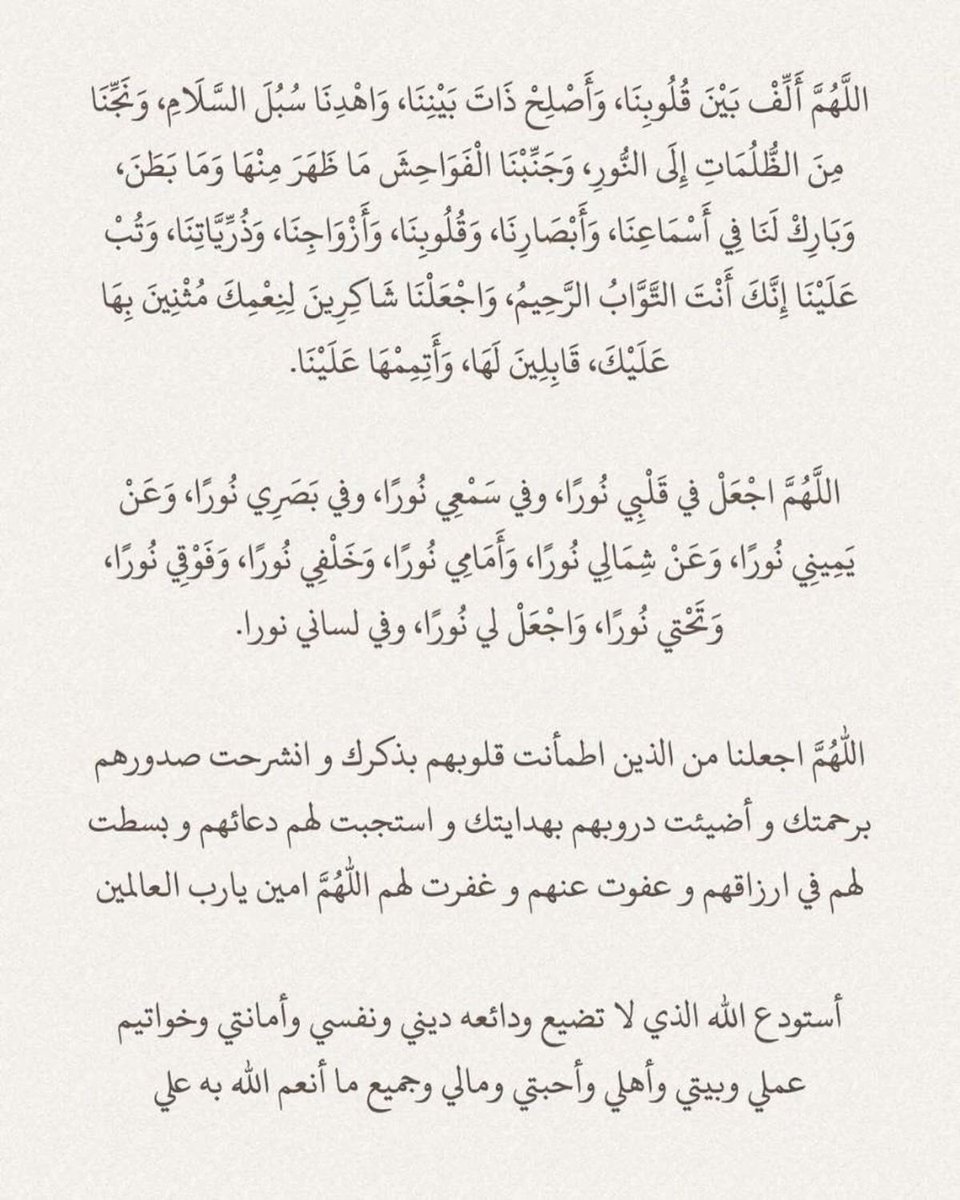 اللَّهُمَّ أَلِّفْ بَيْنَ قُلُوبِنَا، وَأَصْلِحْ ذَاتَ بَيْنِنَا، وَاهْدِنَا سُبُلَ السَّلَامِ، وَنَجِّنَا
مِنَ الظُّلُمَاتِ إِلَى النُّورِ، وَجَنِّبْنَا الْفَوَاحِشَ مَا ظَهَرَ مِنْهَا وَمَا بَطَنَ،
وَبَارِكْ لَنَا فِي أَسْمَاعِنَا، وَأَبْصَارِنَا، وَقُلُوبِنَا، وَأَزْوَاجِنَا، وَذُرِّيَّاتِنَا، وَتُبْ
عَلَيْنَا إِنَّكَ أَنْتَ التَّوَّابُ الرَّحِيمُ، وَاجْعَلْنَا شَاكِرِينَ لِنِعْمِكَ مُثْنِينَ بِهَا
عَلَيْكَ، قَابِلِينَ لَهَا، وَأَتِمِمْهَا عَلَيْنَا.
اللَّهُمَّ اجْعَلْ في قَلْبِي نُورًا، وفي سَمْعِي نُورًا، وفي بَصَرِي نُورًا، وَعَنْ
يَمِينِي نُورًا، وَعَنْ شِمَالِي نُورًا، وَأَمَامِي نُورًا، وَخَلْفِي نُورًا، وَفَوْقِي نُورًا،
وَتَحْتي نُورًا، وَاجْعَلْ لي نُورًا، وفي لساني نورا.
اللَّهُمَّ اجعلنا من الذين اطمأنت قلوبهم بذكرك و انشرحت صدورهم
برحمتك و أضيئت دروبهم بهدايتك و استجبت لهم دعائهم و بسطت
لهم في ارزاقهم و عفوت عنهم و غفرت لهم اللَّهُمَّ امين يارب العالمين
أستودع الله الذي لا تضيع ودائعه ديني ونفسي وأمانتي وخواتيم
عملي وبيتي وأهلي وأحبتي ومالي وجميع ما أنعم الله به علي